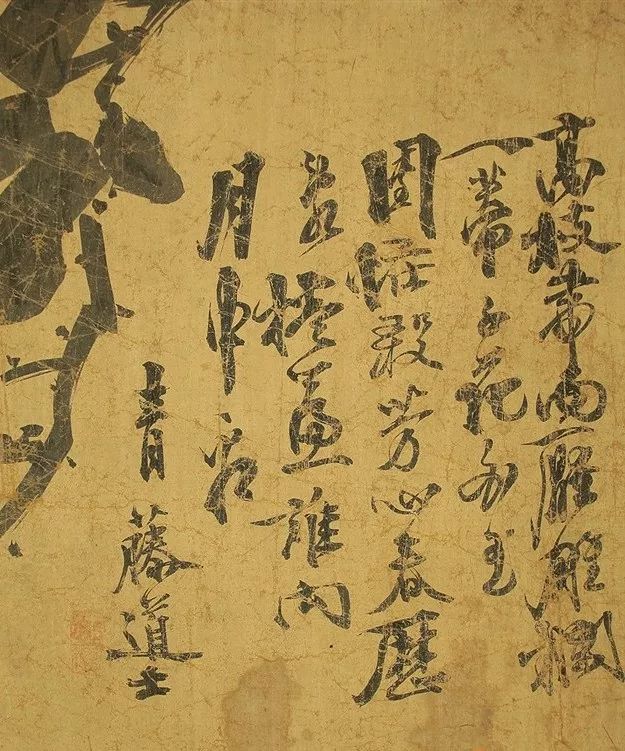 高枝帶雨壓雕欄
一蒂千花白玉
團怪殺芳心春歷
亂捲簾誰向
月中看
青藤道士